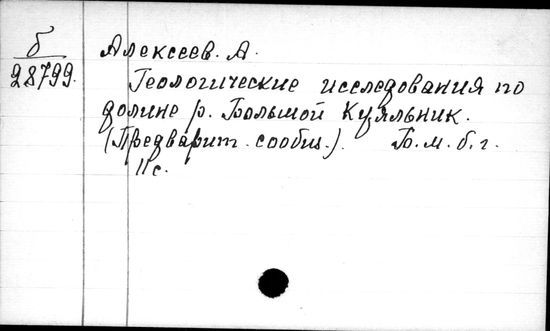 б
28799.
Алексеев. А.
Геологические исследования по
долине р. Большой Куяльник.
(Предварит. сообщ.). Б. м. б. г.
11 с.